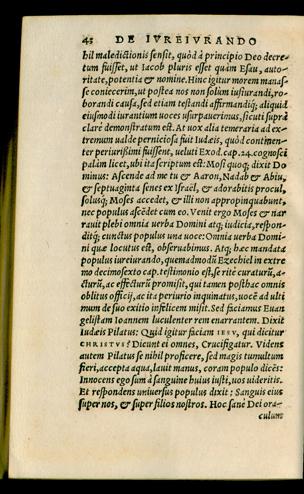 45 DE IVREIVRANDO
hil maledictionis sensit, quòd à principio Deo decre-
tum fuisset, ut Iacob pluris esset quàm Esau, auto-
ritate, potentia & nomine. Hinc igitur morem manas-
se coniecerim, ut postea nos non solùm iusiurandi, ro-
borandi causa, sed etiam testandi affirmandiq; aliquid
eiusmodi iurantium uoces usurpauerimus, sicuti suprà
clarè demonstratum est. At uox alia temeraria ad ex-
tremum ualde perniciosa fuit Iudæis, quòd continen-
ter periurißimi fuissent, uelut Exod. cap. 24. cognosci
palàm licet, ubi ita scriptum est: Mosi quoq; dixit Do
minus: Ascende ad me tu & Aaron, Nadab & Abiu,
& septuaginta senes ex Israël, & adorabitis procul,
solusq; Moses accedet, & illi non appropinquabunt,
nec populus ascēdet cum eo. Venit ergo Moses & nar
rauit plebi omnia uerba Domini atq; iudicia, respon-
ditq; cunctus populus una uoce: Omnia uerba Domi-
ni quæ locutus est, obseruabimus. Atq; hæc mandata
populus iureiurando, quemadmodū Ezechiel in extre
mo decimosexto cap. testimonio est, se ritè curaturū, a-
cturū, ac effecturū promisit, qui tamen posthac omnis
oblitus officij, ac ita periurio inquinatus, uocē ad ulti
mum de suo exitio infelicem misit. Sed faciamus Euan
gelistam Ioannem luculenter rem enarrantem. Dixit
Iudæis Pilatus: Quid igitur faciam IESV, qui dicitur
CHRISTVS? Dicunt ei omnes, Crucifigatur. Videns
autem Pilatus se nihil proficere, sed magis tumultum
fieri, accepta aqua, lauit manus, coram populo dicēs:
Innocens ego sum à sanguine huius iusti, uos uideritis.
Et respondens uniuersus populus dixit: Sanguis eius
super nos, & super filios nostros. Hoc sanè Dei ora-
culum